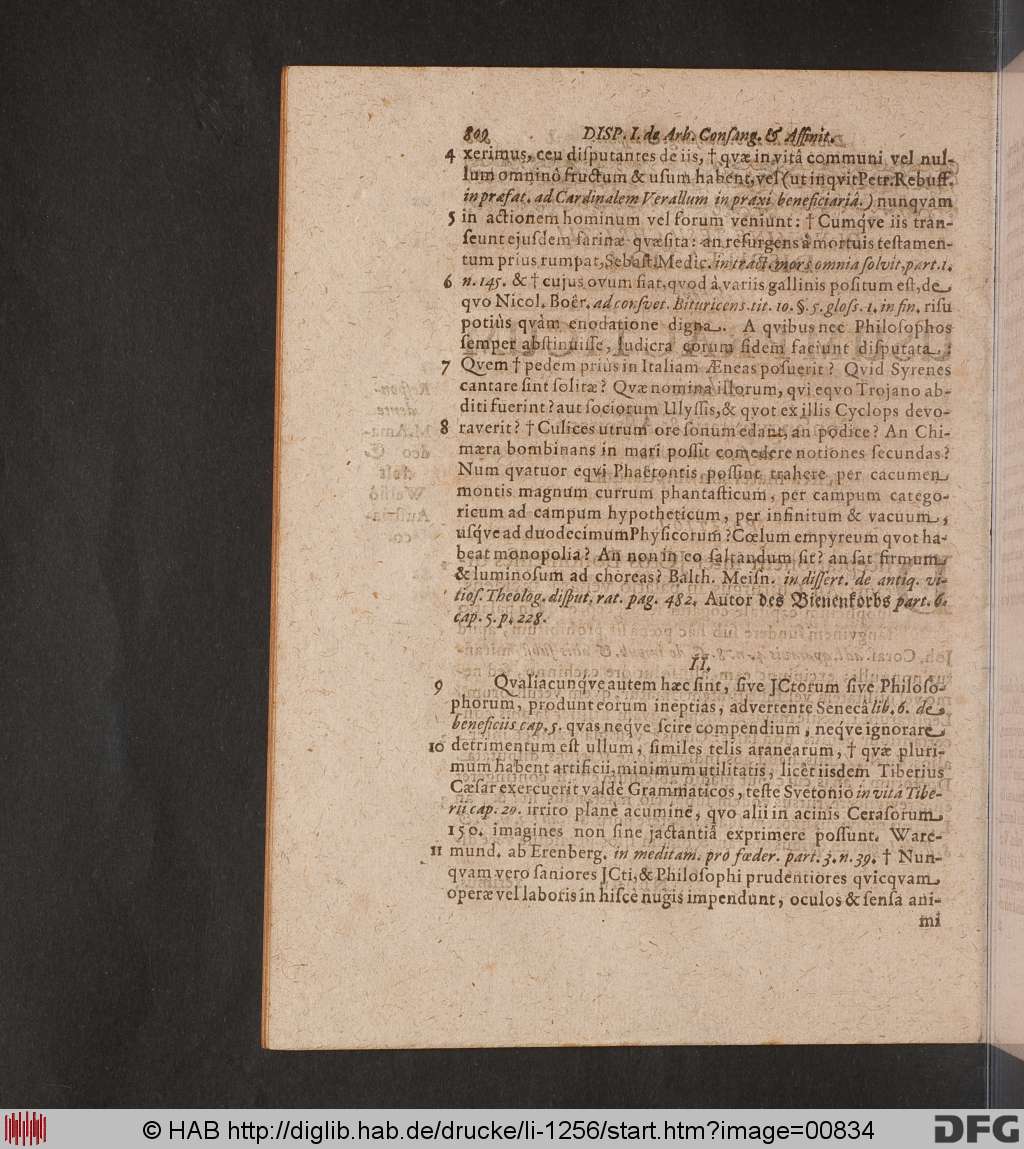 809 DISP. I. de Arb. Conſang. & Affinit.
4 xerimus, ceu diſputantes de iis, † qvæ in vitâ communi vel nul-
lum omninò fructum & uſum habent, vel (ut inqvit Petr. Rebuff.
in præfat. ad Cardinalem Verallum in praxi beneficiariâ.) nunqvam
5 in actionem hominum vel forum veniunt: † Cumq́ve iis tran-
ſeunt ejuſdem farinæ qvæſita: an reſurgens à mortuis teſtamen-
tum prius rumpat, Sebaſt. Medic. in tract. mors omnia ſolvit, part. 1.
6 n. 145. & † cujus ovum fiat, qvod à variis gallinis poſitum eſt, de
qvo Nicol. Boêr. ad conſvet. Bituricens. tit. 10. §. 5. gloſs. 1. in fin. riſu
potiùs qvàm enodatione digna. A qvibus nec Philoſophos
ſemper abſtinuiſſe, ludicra eorum fidem faciunt diſputata:
7 Qvem † pedem prius in Italiam Æneas poſuerit? Qvid Syrenes
cantare ſint ſolitæ? Qvæ nomina illorum, qvi eqvo Trojano ab-
diti fuerint? aut ſociorum Ulyſſis, & qvot ex illis Cyclops devo-
8 raverit? † Culices utrum ore ſonum edant, an podice? An Chi-
mæra bombinans in mari poſſit comedere notiones ſecundas?
Num qvatuor eqvi Phaëtontis poſſint trahere per cacumen
montis magnum currum phantaſticum, per campum catego-
ricum ad campum hypotheticum, per infinitum & vacuum,
uſq́ve ad duodecimum Phyſicorum? Cœlum empyreum qvot ha-
beat monopolia? An non in eo ſaltandum ſit? an ſat firmum
& luminoſum ad choreas? Balth. Meiſn. in diſſert. de antiq. vi-
tioſ. Theolog. diſput. rat. pag. 482. Autor des Bienenkorbs part. 6.
cap. 5. p. 228.
II.
9 Qvaliacunq́ve autem hæc ſint, ſive JCtorum ſive Philoſo-
phorum, produnt eorum ineptias, advertente Senecâ lib. 6. de
beneficiis cap. 5. qvas neq́ve ſcire compendium, neq́ve ignorare
10 detrimentum eſt ullum, ſimiles telis aranearum, † qvæ pluri-
mum habent artificii, minimum utilitatis, licèt iisdem Tiberius
Cæſar exercuerit valdè Grammaticos, teſte Svetonio in vitâ Tibe-
rii cap. 20. irrito planè acumine, qvo alii in acinis Ceraſorum
150. imagines non ſine jactantiâ exprimere poſſunt. Ware-
11 mund. ab Erenberg. in meditam. pro fœder. part. 3. n. 39. † Nun-
qvam vero ſaniores JCti, & Philoſophi prudentiores qvicqvam
operæ vel laboris in hiſcè nugis impendunt, oculos & ſenſa ani-
mi
© HAB http://diglib.hab.de/drucke/li-1256/start.htm?image=00834
DFG